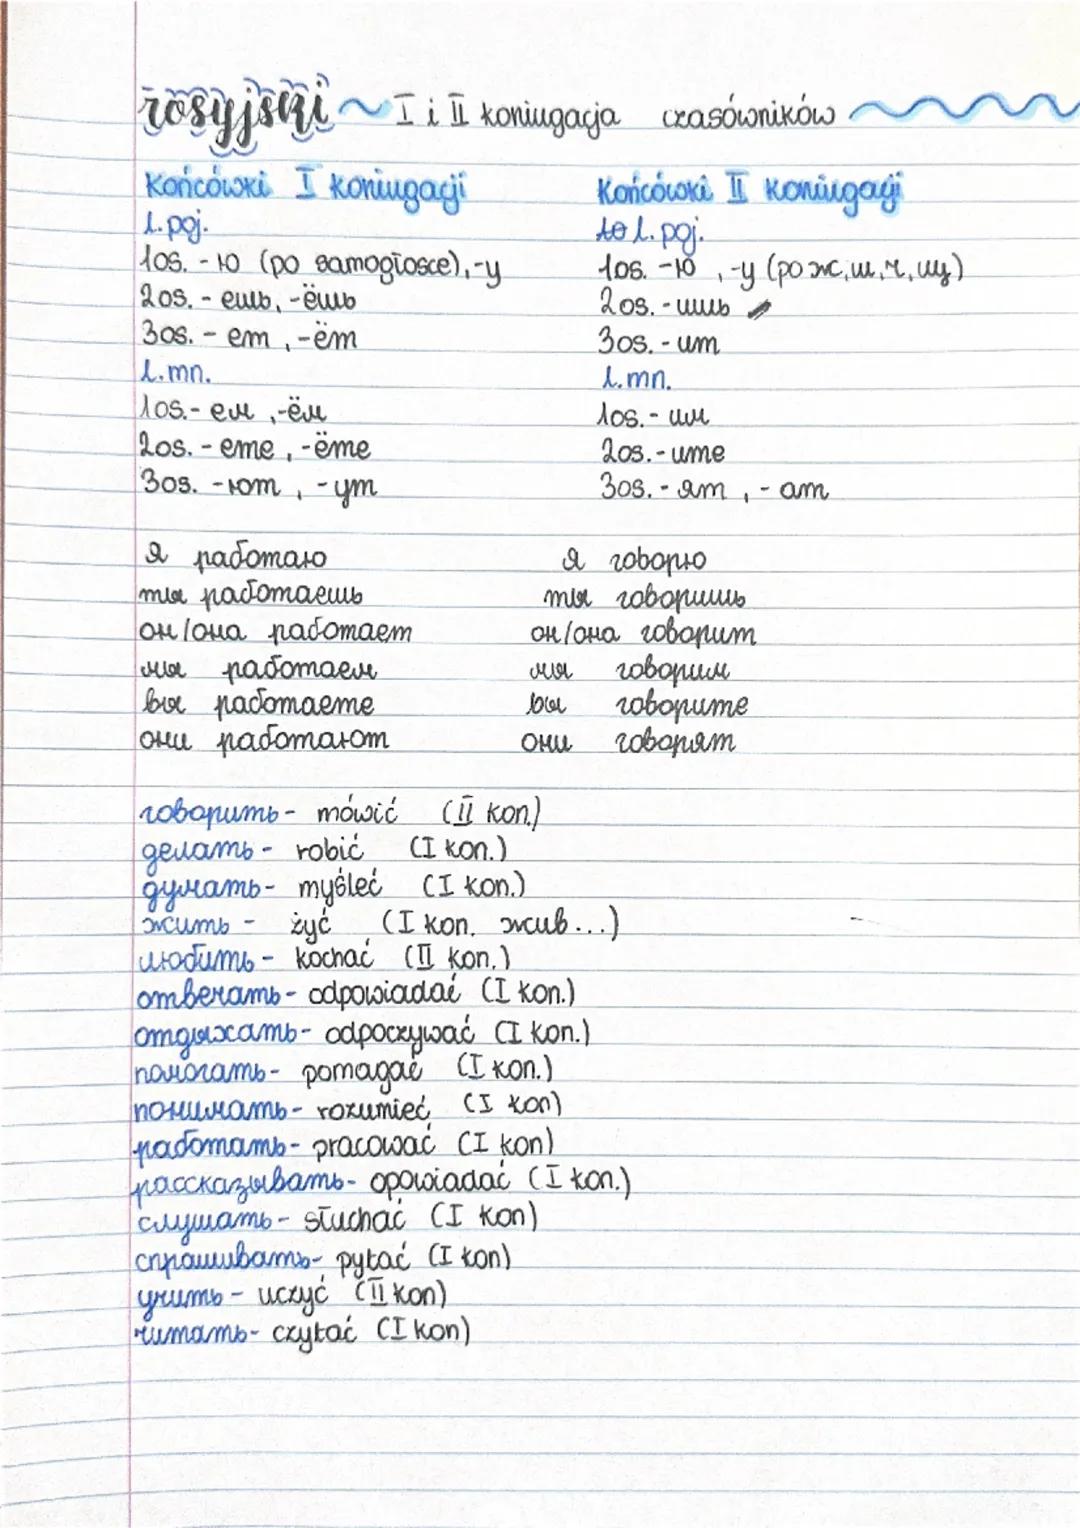 rosyjski ~ I i II koniugacja czasówników
Końcówki I koniugacji
l.poj.
1os. - ю (po samogłosce), -у
2os. - ешь, -ёшь
3os. - ет, -ёт
l.mn.
1os. - ем, -ём
2os. - ете, -ёте
3os. - ют, - ут
Końcówki II koniugacji
l.poj.
1os. - ю, -у (po ж, ш, ч, щ)
2os. - ишь
3os. - ит
l.mn.
1os. - им
2os. - ите
3os. - ят, - ат
я работаю
ты работаешь
он/она работает
мы работаем
вы работаете
они работают
я говорю
ты говоришь
он/она говорит
мы говорим
вы говорите
они говорят
говорить - mówić (II kon.)
делать - robić (I kon.)
думать - myśleć (I kon.)
жить - żyć (I kon. жив...)
любить - kochać (II kon.)
отвечать - odpowiadać (I kon.)
отдыхать - odpoczywać (I kon.)
помогать - pomagać (I kon.)
понимать - rozumieć (I kon)
работать - pracować (I kon)
рассказывать - opowiadać (I kon.)
слушать - słuchać (I kon)
спрашивать - pytać (I kon)
учить - uczyć (II kon)
читать - czytać (I kon)